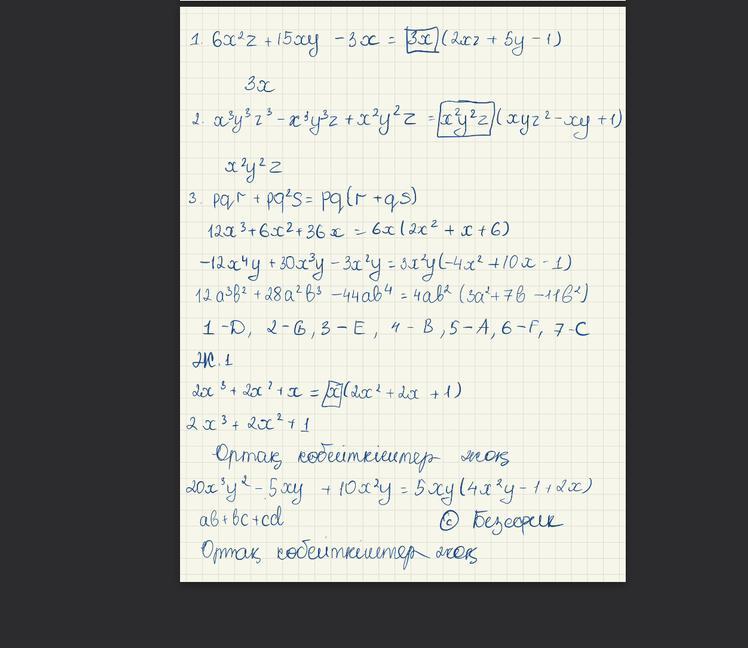 1. 6x²z + 15xy - 3x = 3x (2xz + 5y - 1)
3x
2. x³y³z³ - x³y³z + x²y²z = x²y²z (xyz² - xy + 1)
x²y²z
3. pqr + pq²s = pq(r + qs)
12x³ + 6x² + 36x = 6x(2x² + x + 6)
-12x⁴y + 30x³y - 3x²y = 3x²y(-4x² + 10x - 1)
12a³b² + 28a²b³ - 44ab⁴ = 4ab² (3a² + 7b - 11b²)
1-D, 2-G, 3-E, 4-B, 5-A, 6-F, 7-C
Ж.1
2x³ + 2x² + x = x(2x² + 2x + 1)
2x³ + 2x² + 1
Ортақ көбейткіштер жоқ
20x³y² - 5xy + 10x²y = 5xy(4x²y - 1 + 2x)
ab + bc + cd © Безефрик
Ортақ көбейткіштер жоқ